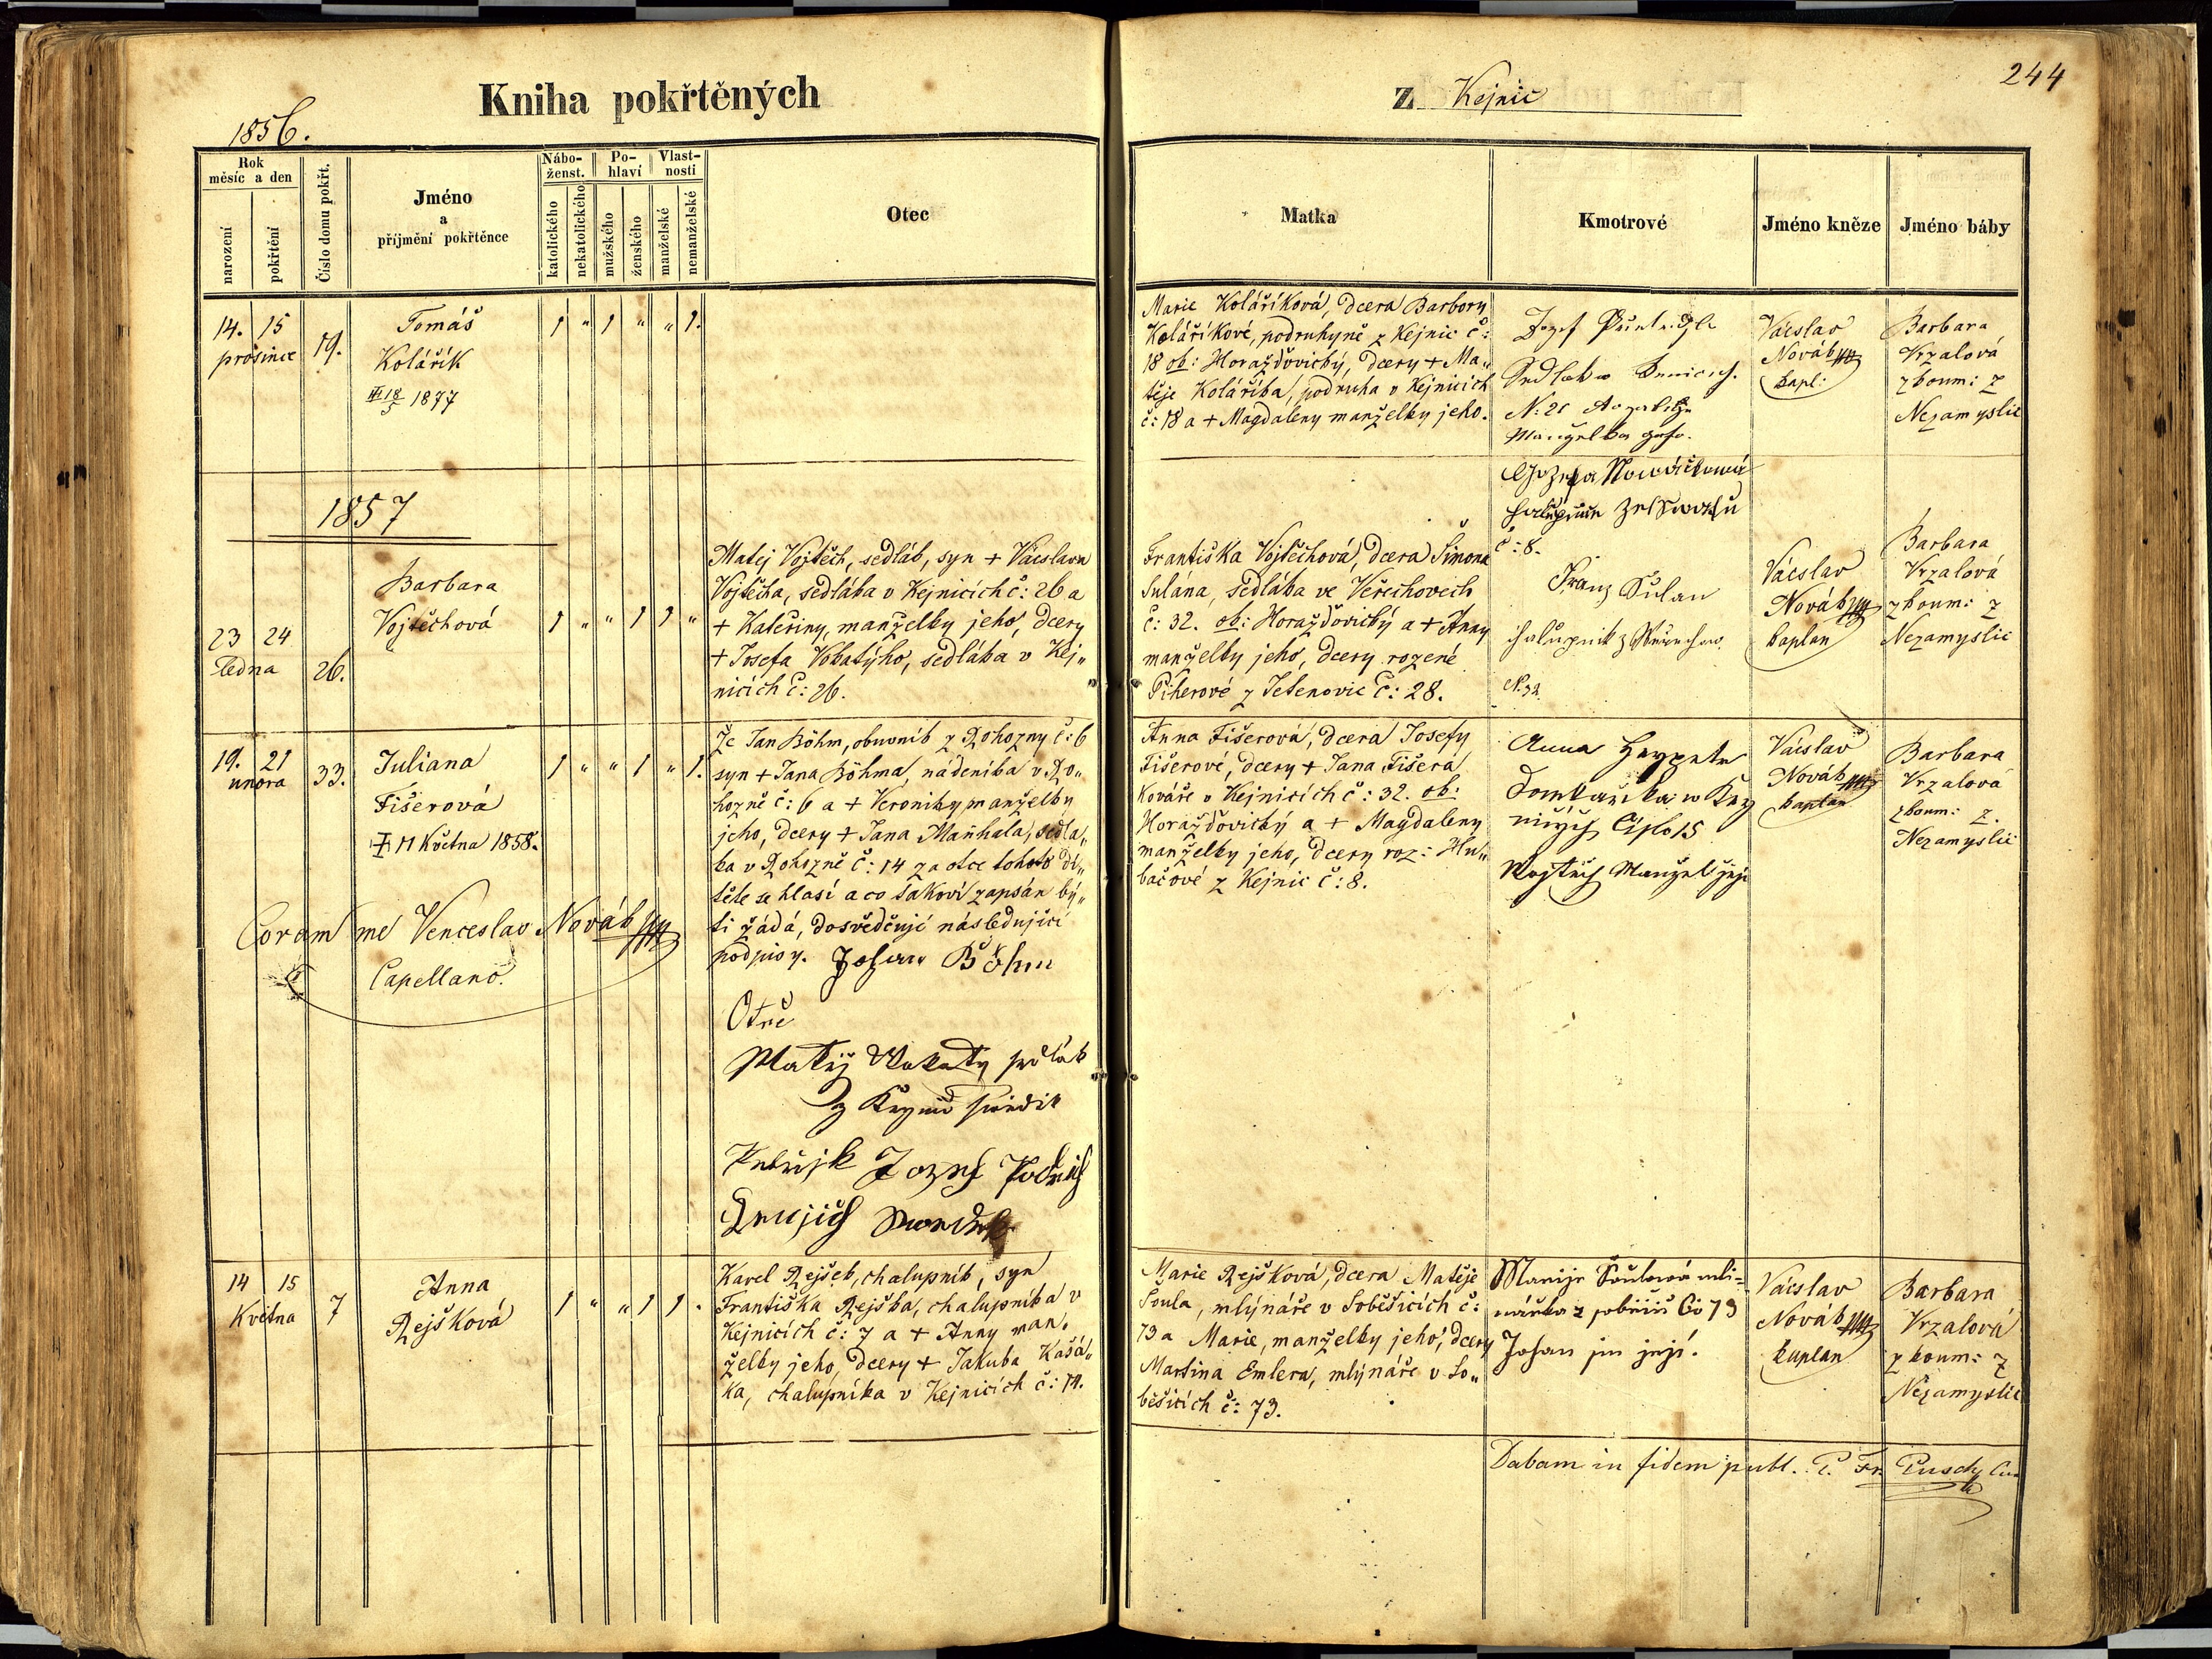 Kniha pokřtěných
z Kejnic
244
1856.
Rok
měsíc a den
narození
pokřtění
Číslo domu pokřt.
Jméno
a
příjmění pokřtěnce
Nábo-
ženst.
katolického
nekatolického
Po-
hlaví
mužského
ženského
Vlast-
nosti
manželské
nemanželské
Otec
Matka
Kmotrové
Jméno kněze
Jméno báby
14. 15
prosince
19.
Tomáš
Kolářík
III 18/5 1877
1 " 1 " " 1.
Marie Koláříková, dcera Barbory
Koláříkové, podruhyně z Kejnic č:
18 ob: Horažďovický, dcery + Ma„
těje Koláříka, podruha v Kejnicích
č: 18 a + Magdaleny manželky jeho.
Jozef
Sedlak
N: 21
Manzelka geho.
Vácslav
Novák
kapl:
Barbara
Vrzalová
z koum: z
Nezamyslic
1857
23 24
ledna
26.
Barbara
Vojtěchová
1 " " 1 1 "
Matěj Vojtěch, sedlák, syn + Vácslava
Vojtěcha, sedláka v Kejnicích č: 26 a
+ Kateřiny, manželky jeho, dcery
+ Josefa Vokatýho, sedláka v Kej„
nicích č: 26.
Františka Vojtěchová, dcera Šimona
Sulána, sedláka ve Veřechovech
č: 32. ob: Horažďovický a + Anny
manželky jeho, dcery rozené
Piherové z Tetenovic č: 28.
Jozefa Nowáčkowá
č: 8.
Franz Sulan
chalupnik z
N. 32.
Vácslav
Novák
kaplan
Barbara
Vrzalová
z koum: z
Nezamyslic
19. 21
února
33.
Juliana
Fišerová
+ 11 Května 1858.
1 " " 1 " 1.
Že Jan Böhm, obuvník z Rohozny č: 6
syn + Jana Böhma, nádeníka v Ro„
hozně č: 6 a + Veroniky manželky
jeho, dcery + Jana Maňhala, sedlá„
ka v Rohozně č: 14 za otce tohoto dí„
těte se hlásí a co takový zapsán bý„
ti žádá, dosvědčují následující
podpisy. Johan Böhm
Otec
Matěj Wokatý sedlák
z Keynic swědik
Jozef
Coram me Venceslao Novák
Capellano.
Anna Fišerová, dcera Josefy
Fišerové, dcery + Jana Fišera
Kováře v Kejnicích č: 32. ob:
Horažďovický a + Magdaleny
manželky jeho, dcery roz: Hu„
bačové z Kejnic č: 8.
Anna
Domkařka w Key
nicých Číslo 15
Wojtěch Manžel její
Vácslav
Novák
kaplan
Barbara
Vrzalová
z koum: z.
Nezamyslic
14 15
Května
7
Anna
Rejšková
1 " " 1 1 .
Karel Rejšek, chalupník, syn
Františka Rejška, chalupníka v
Kejnicích č: 7 a + Anny man„
želky jeho, dcery + Jakuba Kašá„
ka, chalupníka v Kejnicích č: 11.
Marie Rejšková, dcera Matěje
Soula, mlýnáře v Soběšicích č:
73 a Marie, manželky jeho, dcery
Martina Emlera, mlýnáře v So„
běšicích č: 73.
Marije Soulowá mli=
nářka z Čis 73
Johan její.
Vácslav
Novák
kaplan
Barbara
Vrzalová
z koum: z
Nezamyslic
Dabam in fidem publ. P. Fr.